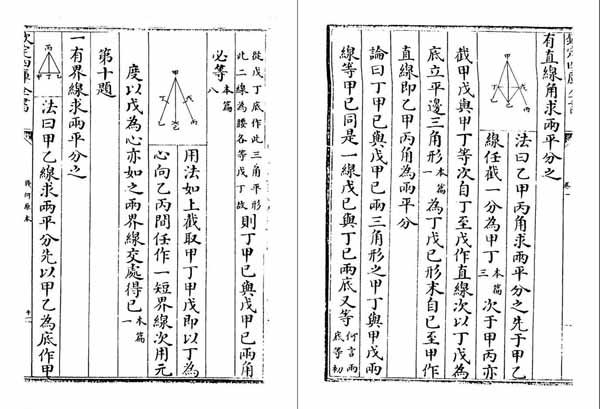 欽定四庫全書
卷一
有直線角求兩平分之
法曰乙甲丙角求兩平分之先于甲乙
線任截一分為甲丁本篇三次于甲丙亦
截甲戊與甲丁等次自丁至戊作直線次以丁戊為
底立平邊三角形本篇一為丁戊己形末自己至甲作
直線即乙甲丙角為兩平分
論曰丁甲己與戊甲己兩三角形之甲丁與甲戊兩
線等甲己同是一線戊己與丁己兩底又等何言兩底等初
從戊丁底作此三角平形此二線為腰各等戊丁故則丁甲己與戊甲己兩角
必等本篇八
用法如上截取甲丁甲戊即以丁為
心向乙丙間任作一短界線次用元
度以戊為心亦如之兩界線交處得己本篇一
第十題
一有界線求兩平分之
法曰甲乙線求兩平分先以甲乙為底作甲
欽定四庫全書
幾何原本